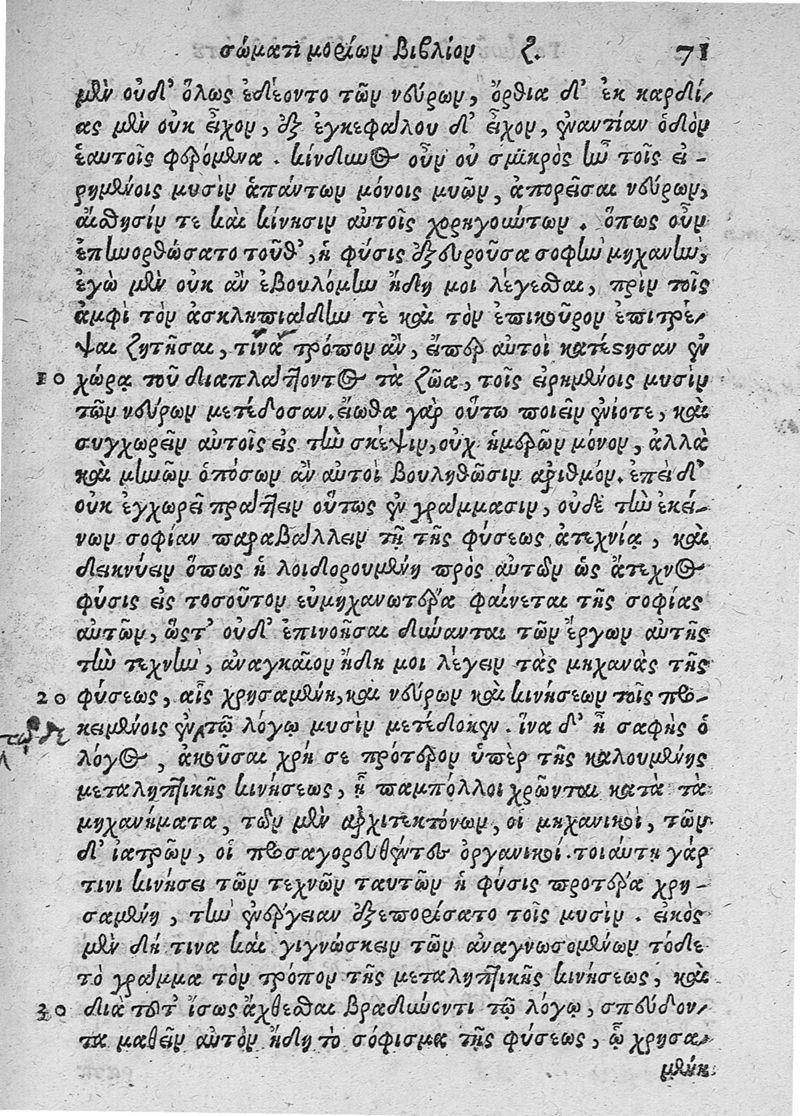 σώματι μορίων Βιβλίον ζ. 71
μὲν οὐδ' ὅλως ἐδέοντο τῶν νεύρων, ὄρθια δ' ἐκ καρδί-
ας μὲν οὐκ εἶχον, ἐξ ἐγκεφάλου δ' εἶχον, ἐναντίαν ὁδὸν
ἑαυτοῖς φερόμενα. κίνδυνος οὖν οὐ σμικρὸς ἦν τοῖς εἰ-
ρημένοις μυσὶν ἁπάντων μόνοις μυῶν, ἀπορεῖσαι νεύρων,
αἴσθησίν τε καὶ κίνησιν αὐτοῖς χορηγούντων. ὅπως οὖν
ἐπηνορθώσατο τοῦθ', ἡ φύσις ἐξευροῦσα σοφὴν μηχανὴν,
ἐγὼ μὲν οὐκ ἂν ἐβουλόμην ἤδη μοι λέγεσθαι, πρὶν τοῖς
ἀμφὶ τὸν ἀσκληπιάδην τὲ καὶ τὸν ἐπικοῦρον ἐπιτρέ-
ψαι ζητῆσαι, τίνα τρόπον ἂν, εἴπερ αὐτοὶ κατέστησαν ἐν
10 χώρᾳ τοῦ διαπλάττοντος τὰ ζῶα, τοῖς εἰρημένοις μυσὶν
τῶν νεύρων μετέδοσαν. εἴωθα γὰρ οὕτω ποιεῖν ἐνίοτε, καὶ
συγχωρεῖν αὐτοῖς εἰς τὴν σκέψιν, οὐχ ἡμερῶν μόνον, ἀλλὰ
καὶ μηνῶν ὁπόσων ἂν αὐτοὶ βουληθῶσιν ἀριθμόν. ἐπεὶ δ'
οὐκ ἐγχωρεῖ πράττειν οὕτως ἐν γράμμασιν, οὐδὲ τὴν ἐκεί-
νων σοφίαν παραβάλλειν τῇ τῆς φύσεως ἀτεχνίᾳ, καὶ
δεικνύειν ὅπως ἡ λοιδορουμένη πρὸς αὐτῶν ὡς ἄτεχνος
φύσις εἰς τοσοῦτον εὐμηχανωτέρα φαίνεται τῆς σοφίας
αὐτῶν, ὥστ' οὐδ' ἐπινοῆσαι δύνανται τῶν ἔργων αὐτῆς
τὴν τεχνὴν, ἀναγκαῖον ἤδη μοι λέγειν τὰς μηχανὰς τῆς
20 φύσεως, αἷς χρησαμένη, καὶ νεύρων καὶ κινήσεων τοῖς προ-
κειμένοις ἐν τῷ λόγῳ μυσὶν μετέδωκεν. ἵνα δ' ᾖ σαφὴς ὁ
λόγος, ἀκοῦσαι χρή σε πρότερον ὑπὲρ τῆς καλουμένης
μεταληπτικῆς κινήσεως, ᾗ πάμπολλοι χρῶνται κατὰ τὰ
μηχανήματα, τῶν μὲν ἀρχιτεκτόνων, οἱ μηχανικοὶ, τῶν
δ' ἰατρῶν, οἱ προσαγορευθέντες ὀργανικοί. τοιαύτῃ γάρ
τινι κινήσει τῶν τεχνῶν ταυτῶν ἡ φύσις προτέρα χρη-
σαμένη, τὴν ἐνέργειαν ἐξεπορίσατο τοῖς μυσὶν. εἰκὸς
μὲν δή τινα καὶ γιγνώσκειν τῶν ἀναγνωσομένων τόδε
τὸ γράμμα τὸν τρόπον τῆς μεταληπτικῆς κινήσεως, καὶ
30 διὰ τοῦτ' ἴσως ἄχθεσθαι βραδύνοντι τῷ λόγῳ, σπεύδον-
τα μαθεῖν αὐτὸν ἤδη τὸ σόφισμα τῆς φύσεως, ᾧ χρησα-
μένη